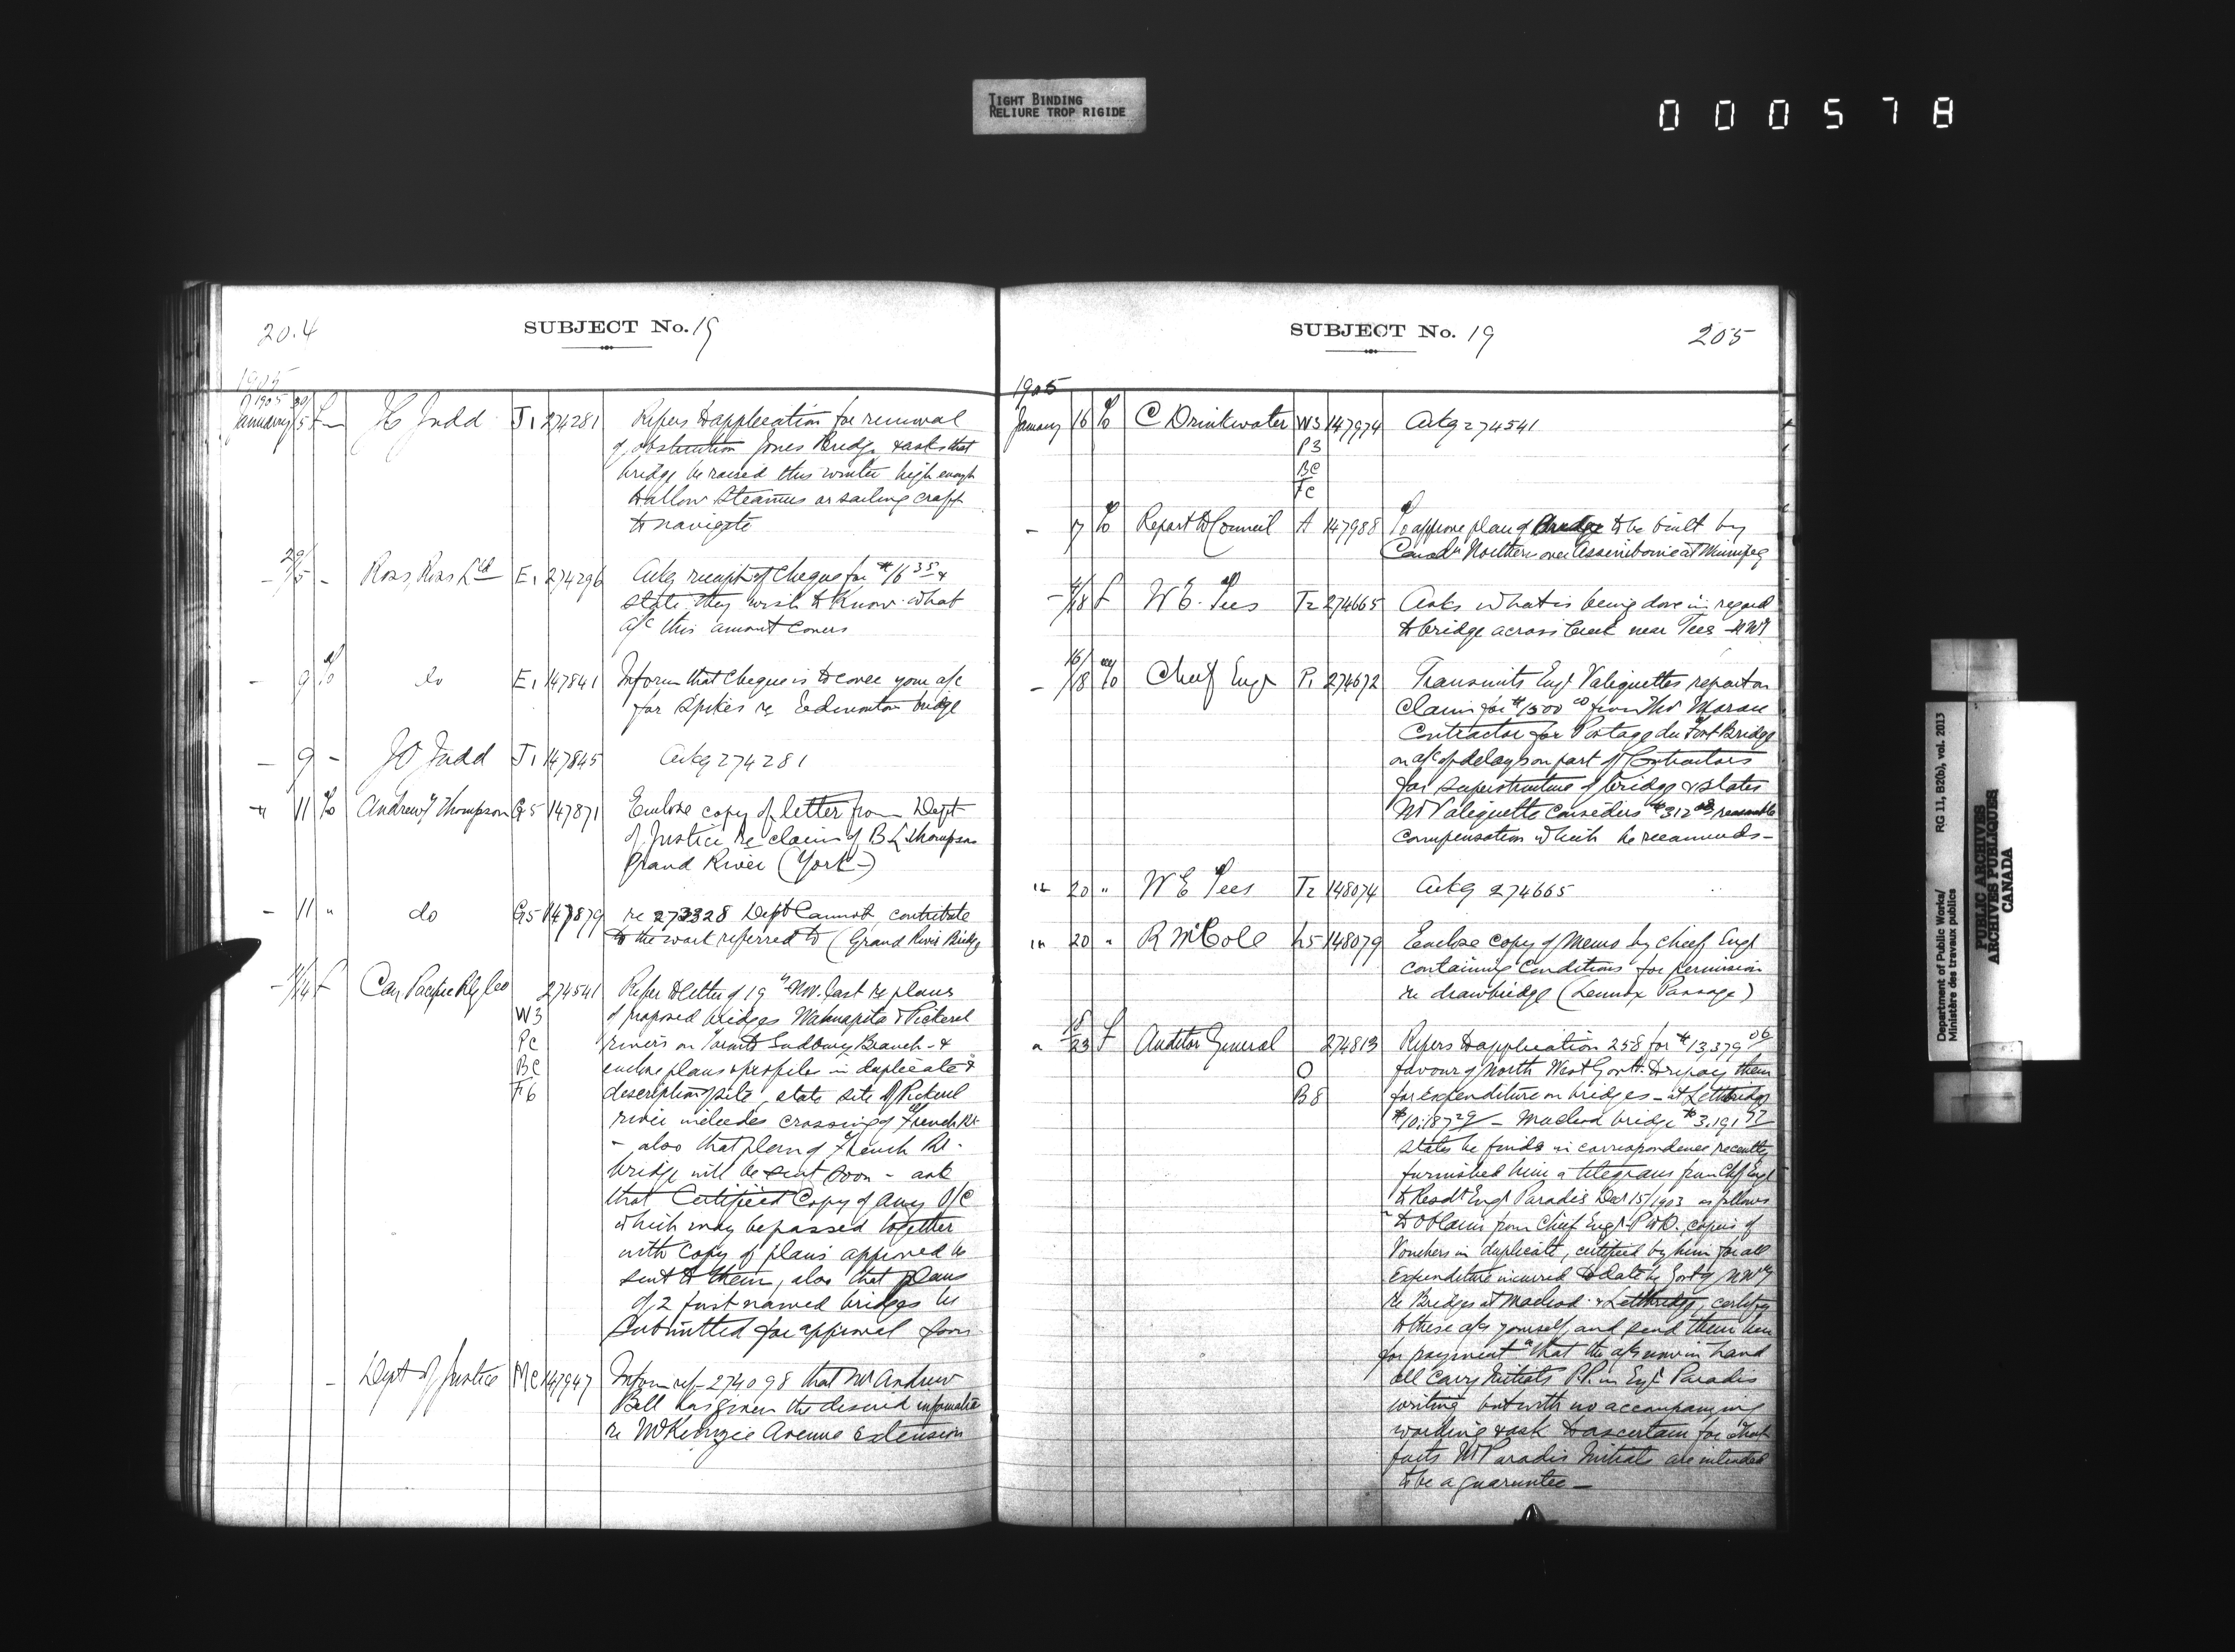 TIGHT BINDING
RELIURE TROP RIGIDE
000578
204
SUBJECT No. 19
1905
January 5 J C Judd J1 274281 Refers to application for removal
of obstruction Jones Bridge & asks that
bridge be raised this winter high enough
to allow steamers or sailing craft
to navigate
- 29/5 - Ross, Ross Ltd E1 274296 Ackg receipt of cheque for $16 35 &
state they wish to know what
a/c this amount covers
- 9 To do E1 147841 Inform that cheque is to cover your a/c
for Spikes re Edmonton bridge
- 9 - J C Judd J1 147845 Ackg 274281
" 11 To Andrew T Thompson G5 147871 Enclose copy of letter from Dept
of Justice re claim of B L Thompson
Grand River (York)
- 11 " do G5 147879 re 273328 Dept Cannot contribute
to the work referred to (Grand River Bridge
- 11/14 F Can Pacific Ry Co 274541 Refer to letter of 19th Nov. last re plans
W3 of proposed bridges Wahnapitae & Pickerel
Pc rivers on Toronto Sudbury Branch - &
Bc enclose plans & profiles in duplicate &
F6 description of site, state site of Pickerel
river includes crossing of French Rr
- also that plan of French Rr.
bridge will be sent soon - ask
that Certified Copy of any O/C
which may be passed together
with copy of plans approved be
sent to them, also that plans
of 2 first named bridges be
submitted for approval soon
- Dept of Justice Mc 147947 Inform ref 274098 that Mr Andrew
Bell has given the desired information
re McKenzie Avenue Extension
SUBJECT No. 19
205
1905
January 16 To C Drinkwater W3 147974 Ackg 274541
P3
Bc
Fc
- 17 To Report to Council A 147988 To approve plan of Bridge to be built by
Canadn Northern over Assiniboine at Winnipeg
- /18 F W E. Tees T2 274665 Asks what is being done in regard
to bridge across Creek near Tees NWT
- 16/18 Chief Engr P1 274672 Transmits Engr Valiquettes report on
claim for $1500 00 from Thos Moran
Contractor for Portage du Fort Bridge
on a/c of delays on part of Contractors
for superstructure of bridge & states
Mr Valiquette considers $312 reasonable
compensation which he recommends -
" 20 " W E Tees T2 148074 Ackg 274665
" 20 " R McCole L5 148079 Enclose copy of Memo by chief Engr
containing conditions for permission
re drawbridge (Lennox Passage)
" 18/23 F Auditor General 274813 Refers to application 258 for $13,379 06
O favour of North West Govt. to repay them
B8 for expenditure on bridges - at Lethbridge
$10,187 29 - Macleod bridge $3,191 77
states he finds in correspondence recently
furnished him a telegram from Chf Engr
to Resdt Engr Paradis Dec 15/1903 as follows
"to obtain from Chief Engr P W D. copies of
Vouchers in duplicate, certified by him for all
Expenditure incurred to date by Govt of NWTy
re Bridges at Macleod & Lethbridge, certify
to these a/cs yourself and send them here
for payment" that the a/cs now in hand
all carry Initials P.P. in Engr Paradis
writing but with no accompanying
wording & ask to ascertain for what
facts Mr Paradis Initials are intended
to be a guarantee -
Department of Public Works/
Ministère des travaux publics
RG 11, B2(b), vol. 2013
PUBLIC ARCHIVES
ARCHIVES PUBLIQUES
CANADA